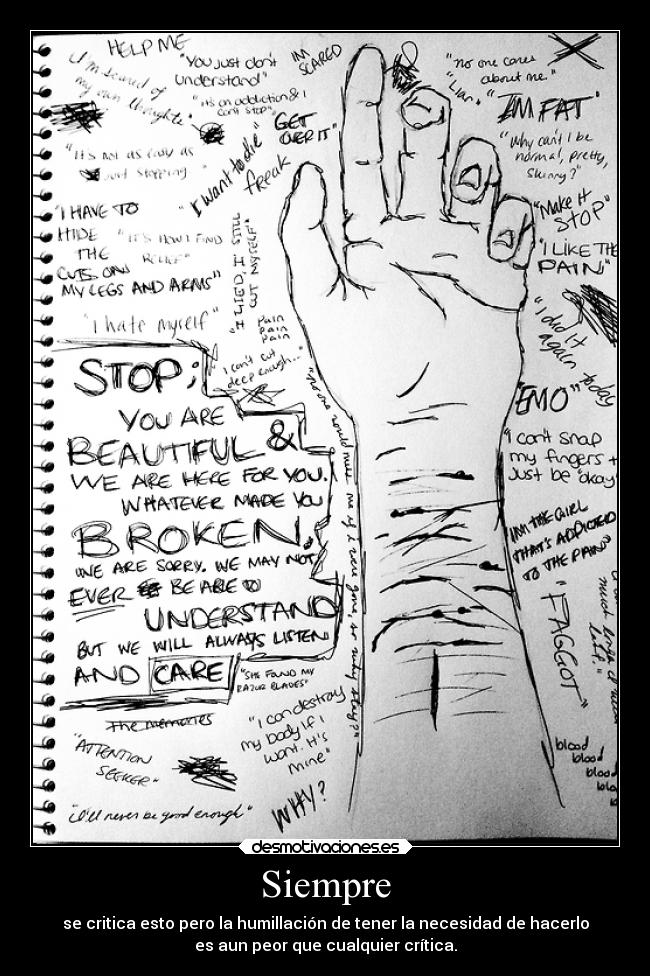 HELP ME
I'm scared of
my own thoughts"
"You just don't
understand"
IM
SCARED
"it's an addiction & I
can't stop"
GET
OVER IT"
"It's not as easy as
just stopping
"I want to die"
freak
"I HAVE TO
HIDE
THE
CUTS ON
MY LEGS AND ARMS"
"IT'S HOW I FIND
RELIEF"
"I LIED I STILL
CUT MYSELF"
"I hate myself"
Pain
pain
pain
I can't cut
deep enough..."
STOP;
YOU ARE
BEAUTIFUL &
WE ARE HERE FOR YOU.
WHATEVER MADE YOU
BROKEN,
WE ARE SORRY. WE MAY NOT
EVER BE ABLE TO
UNDERSTAND
BUT WE WILL ALWAYS LISTEN
AND CARE
"no one would miss me if I were gone, so why stay?"
"SHE FOUND MY
RAZOR BLADES"
The memories
"ATTENTION
SEEKER"
"I can destroy
my body if I
want. It's
mine"
"i'll never be good enough"
WHY?
"no one cares
about me."
"Liar."
"IM FAT"
"Why can't I be
normal, pretty,
skinny?"
"Make it
STOP"
"I LIKE THE
PAIN"
"I did it
again
today
"EMO"
"I can't snap
my fingers +
just be "okay"
IM THE GIRL
THAT'S ADDICTED
TO THE PAIN"
"FAGGOT"
blood
blood
blood
desmotivaciones.es
Siempre
se critica esto pero la humillación de tener la necesidad de hacerlo
es aun peor que cualquier crítica.